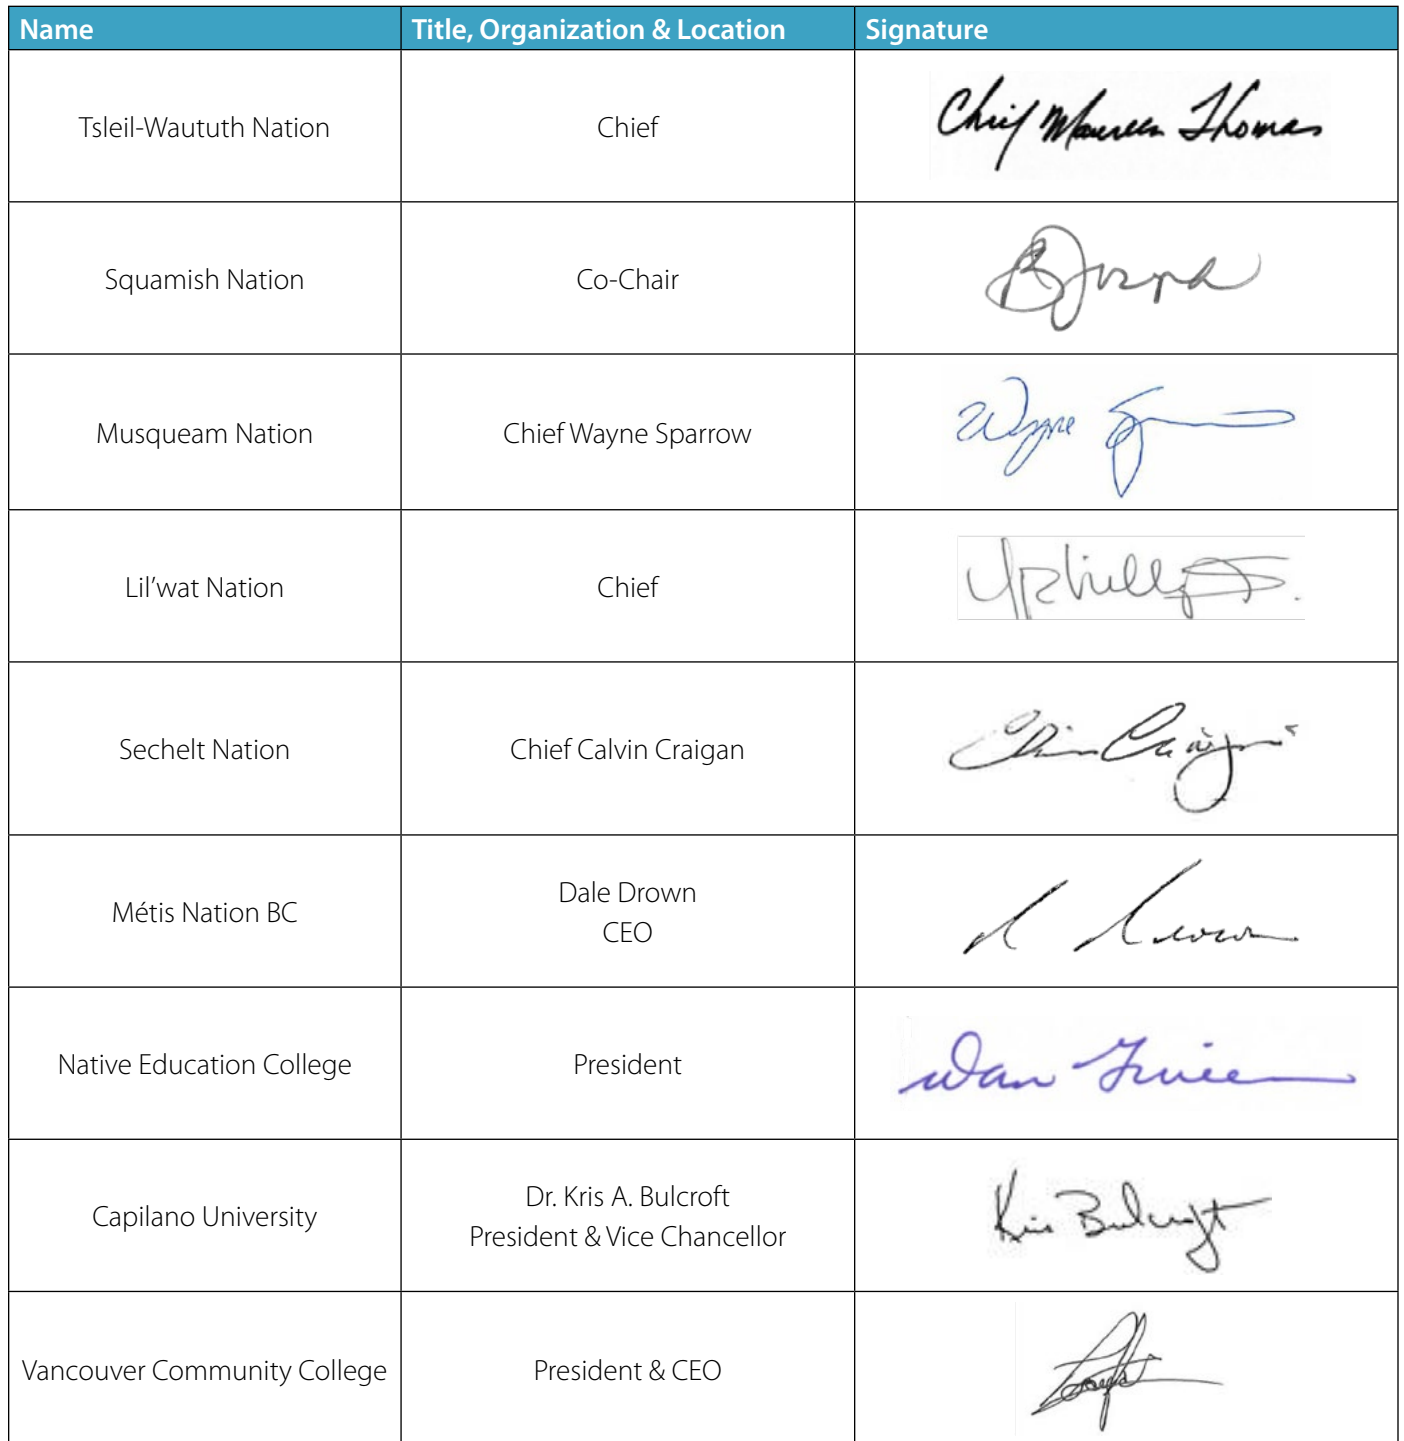 Name Title, Organization & Location Signature
Tsleil-Waututh Nation Chief Chief Maureen Thomas
Squamish Nation Co-Chair B Joseph
Musqueam Nation Chief Wayne Sparrow Wayne
Lil'wat Nation Chief
Sechelt Nation Chief Calvin Craigan Craigan
Dale Drown
Métis Nation BC
CEO
Native Education College President Dan Guinee
Dr. Kris A. Bulcroft
Capilano University Kris Bulcroft
President & Vice Chancellor
Vancouver Community College President & CEO